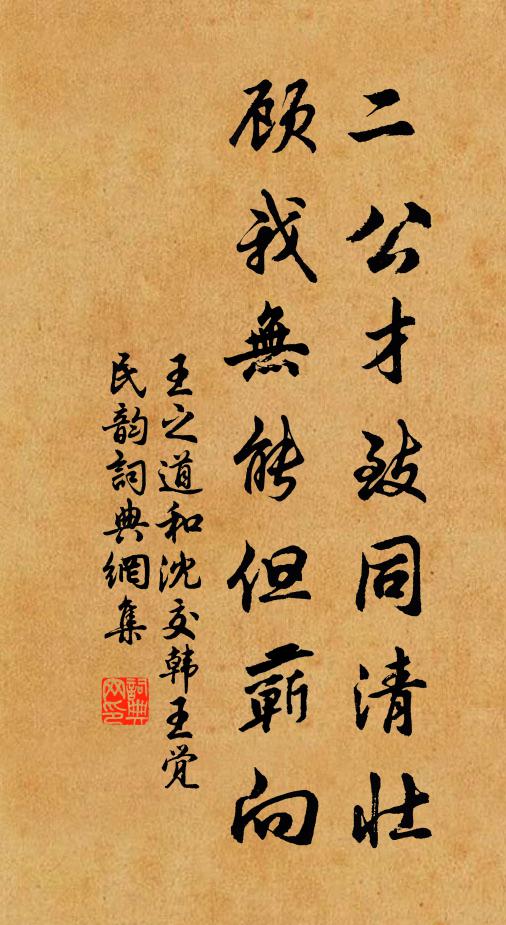 二公才致同清壮
顾我無能但蕲向
王之道和沈文韩王觉
民韵詞典網集
詞典
网印